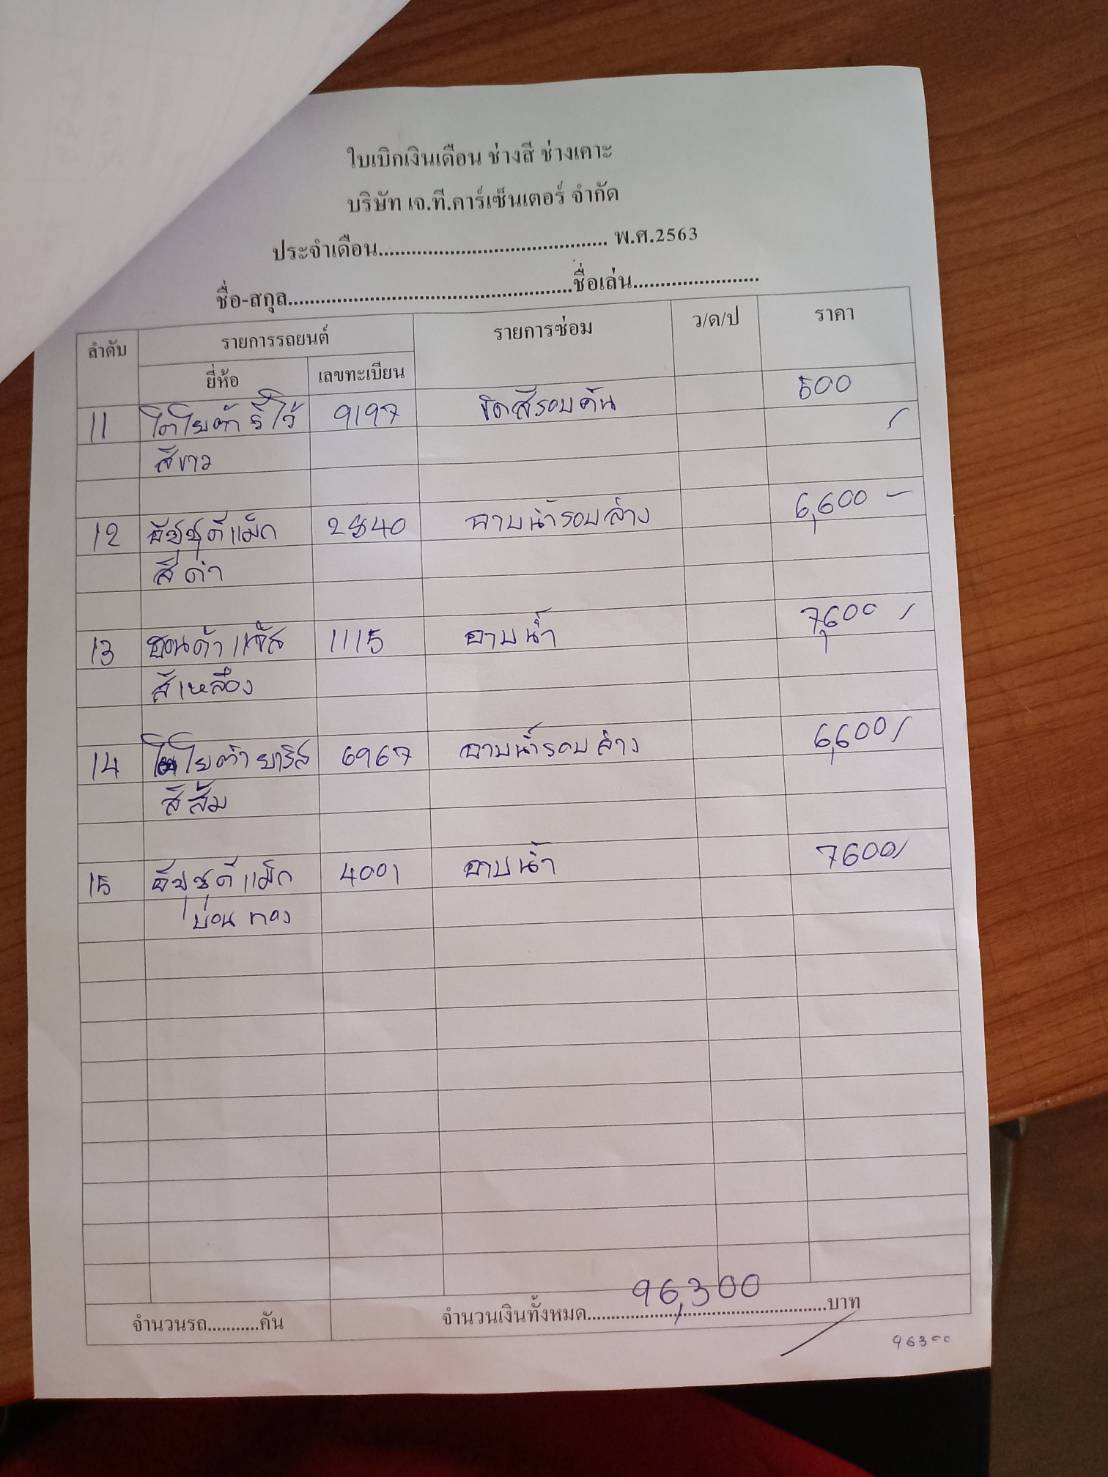 ใบเบิกเงินเดือน ช่างสี ช่างเคาะ
บริษัท เจ.ที.คาร์เซ็นเตอร์ จำกัด
ประจำเดือน.......................................... พ.ศ.2563
ชื่อ-สกุล....................................................ชื่อเล่น.......................
ลำดับ รายการรถยนต์ รายการซ่อม ว/ด/ป ราคา
ยี่ห้อ เลขทะเบียน
11 โตโยต้า รีโว้ 9197 ขัดสีรอบคัน 500
สีขาว
12 อีซูซุดีแม็ก 2840 อาบน้ำรอบล่าง 6,600 -
สีดำ
13 ฮอนด้าแจ๊ส 1115 อาบน้ำ 7,600
สีเหลือง
14 โตโยต้า ยาริส 6967 อาบน้ำรอบล่าง 6,600
สีส้ม
15 อีซูซุดีแม็ก 4001 อาบน้ำ 7600
บ่อนทอง
จำนวนรถ...........คัน จำนวนเงินทั้งหมด...96,300...บาท
96300